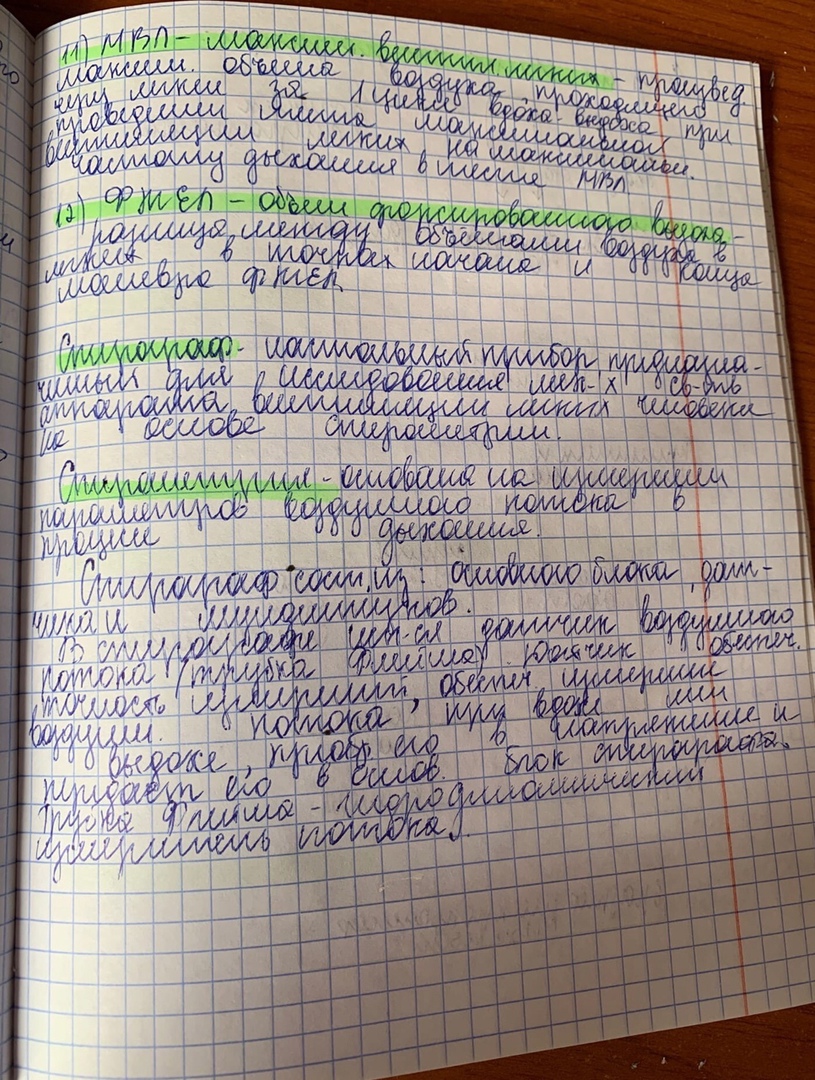 11) МВЛ - максим. вентил. легких - произвед.
максим. объема воздуха, проходящего
через легкие за 1 цикл вдоха-выдоха при
проведении теста максимальной
вентиляции легких на максимальн.
частоту дыхания в тесте МВЛ
12) ФЖЕЛ - объем форсированного выдоха -
разница между объемами воздуха в
легких в точках начала и конца
маневра ФЖЕЛ
Спирограф - настольный прибор, предназна-
ченный для исследования мех-х св-ств
аппарата вентиляции легких человека
на основе спирометрии.
Спирометрия - основана на измерении
параметров воздушного потока в
процессе дыхания.
Спирограф сост. из: основного блока, дат-
чика и мундштуков.
В спирографе исп-ся датчик воздушного
потока (трубка Флейша). Датчик обеспеч.
точность измерений, обеспеч. измерение
воздушн. потока при вдохе или
выдохе, преобр. его в напряжение и
передает его в основ. блок спирографа.
Трубка Флейша - гидродинамический
измеритель потока.